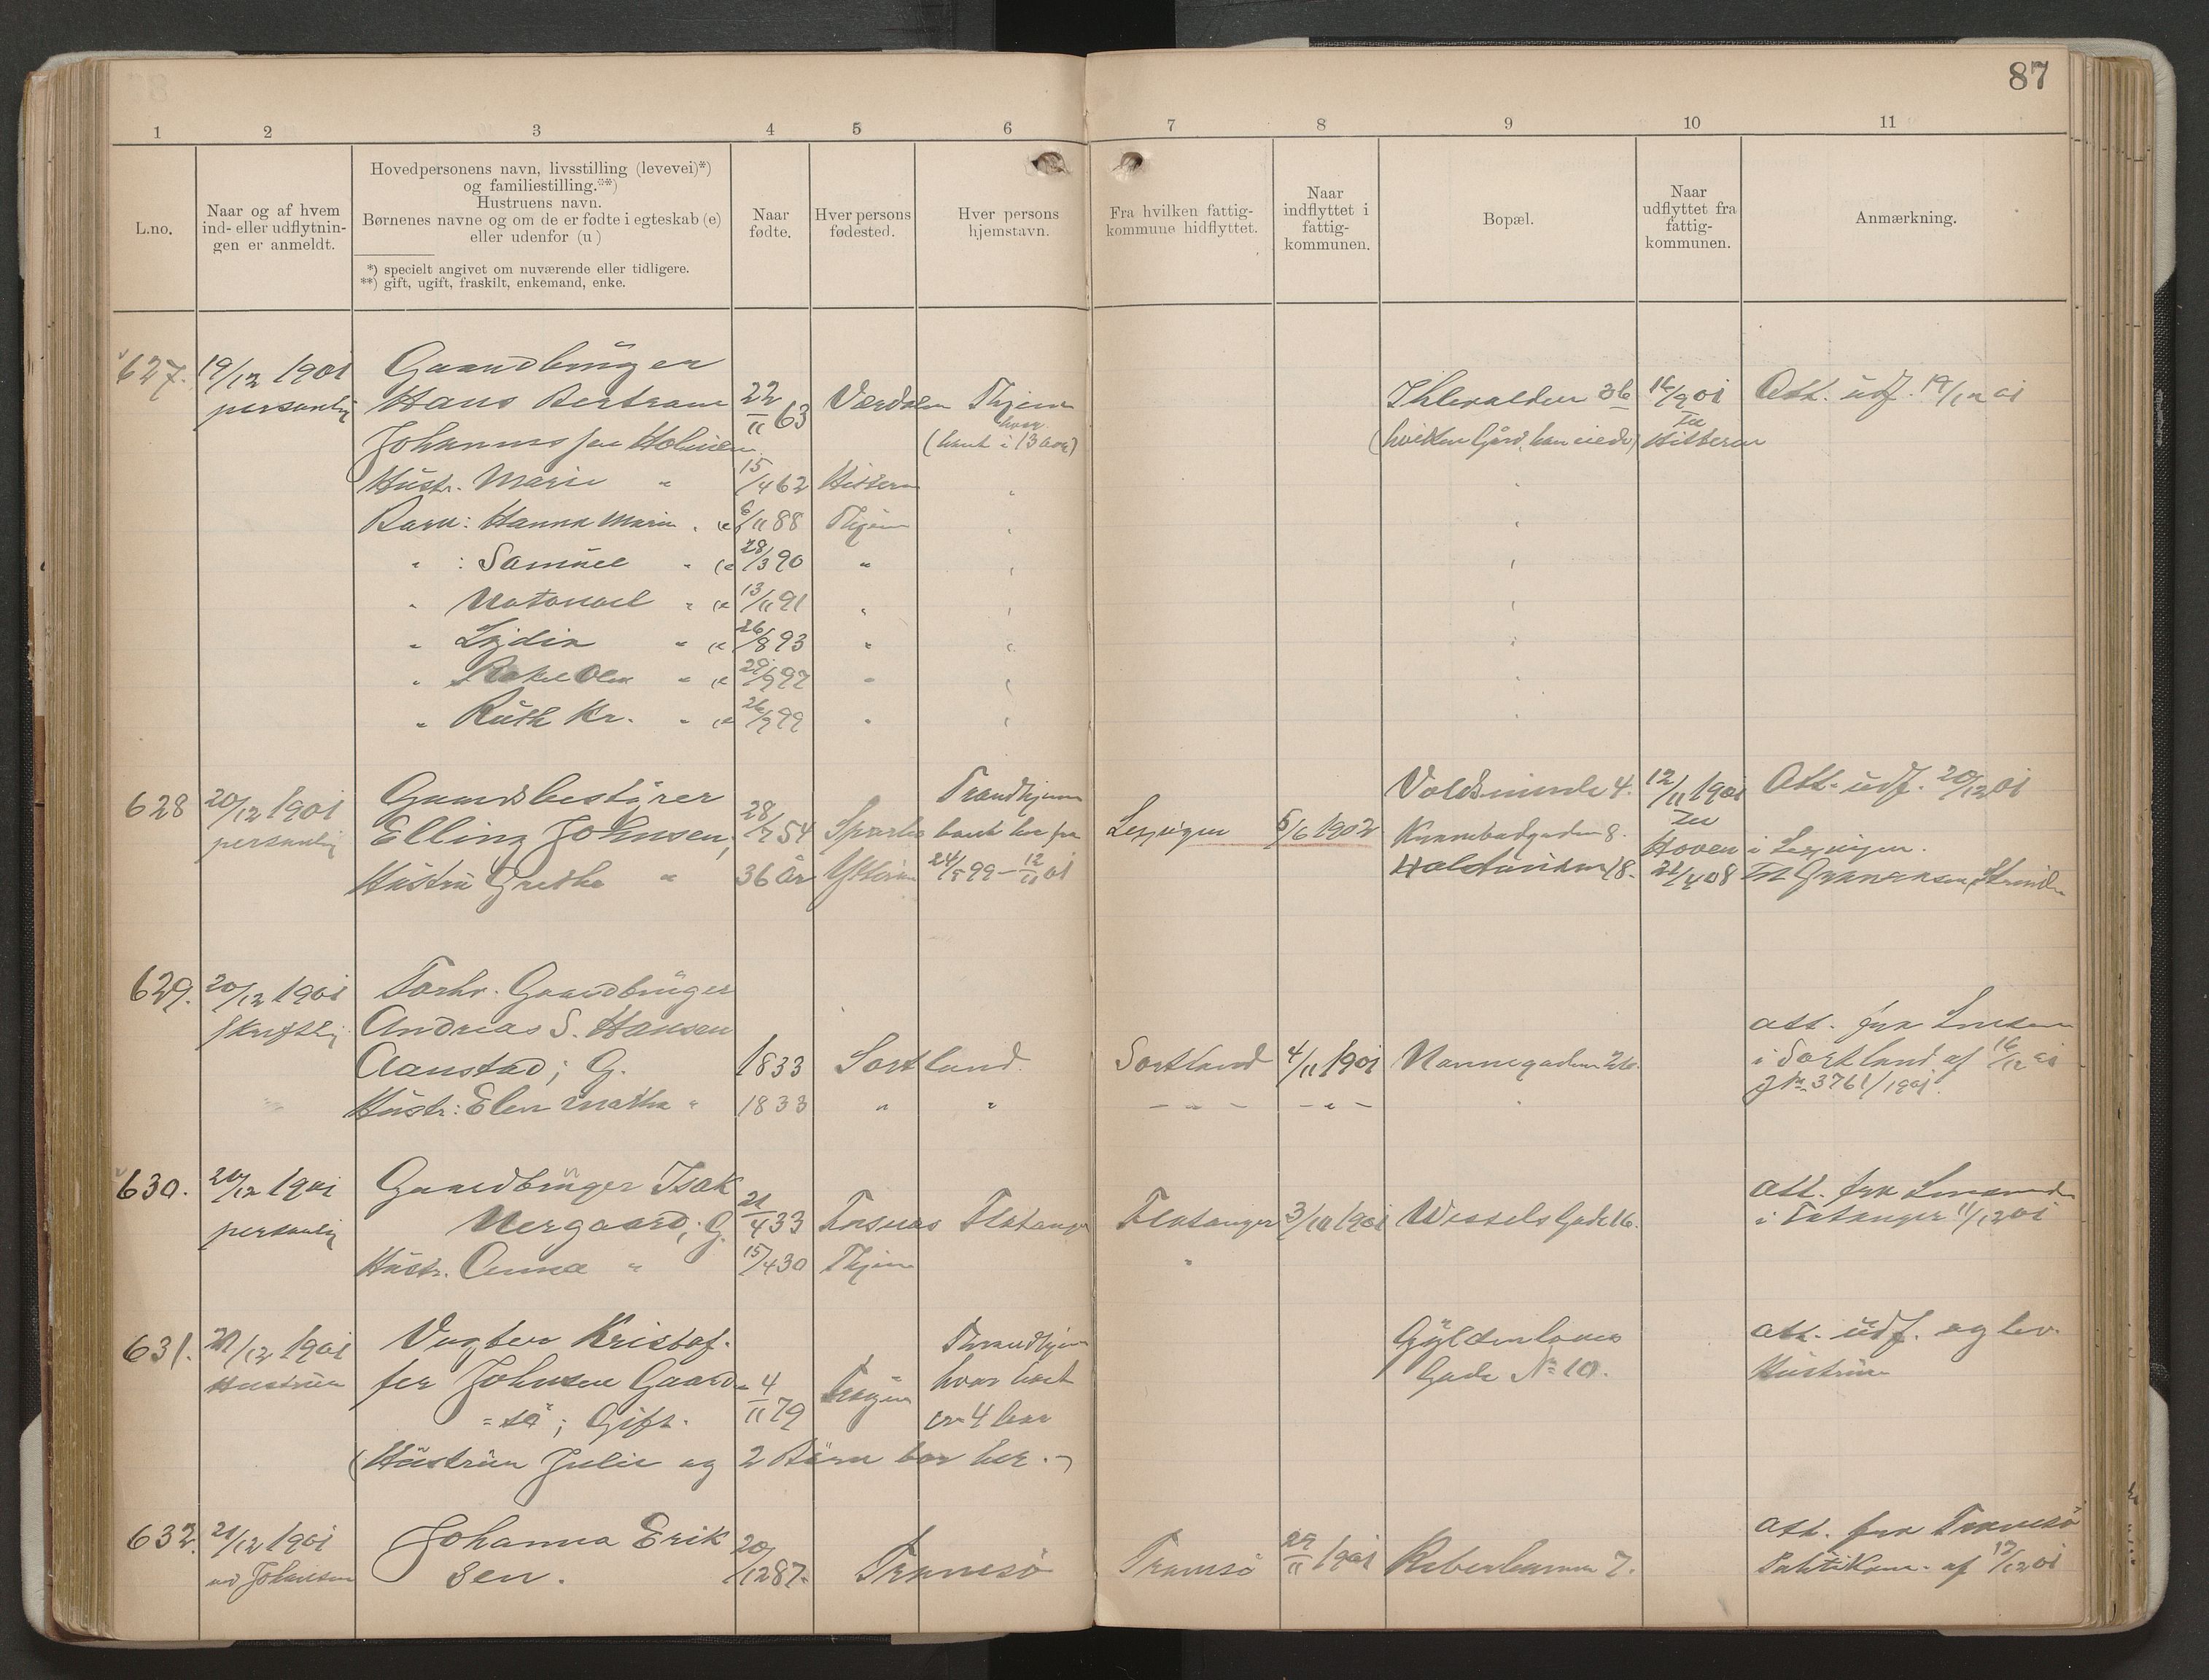 87
1 2 3 4 5 6 7 8 9 10 11
L.no.
Naar og af hvem
ind- eller udflytnin-
gen er anmeldt.
Hovedpersonens navn, livsstilling (levevei)*)
og familiestilling.**)
Hustruens navn.
Børnenes navne og om de er fødte i egteskab (e)
eller udenfor (u)
*) specielt angivet om nuværende eller tidligere.
**) gift, ugift, fraskilt, enkemand, enke.
Naar
fødte.
Hver persons
fødested.
Hver persons
hjemstavn.
Fra hvilken fattig-
kommune hidflyttet.
Naar
indflyttet i
fattig-
kommunen.
Bopæl.
Naar
udflyttet fra
fattig-
kommunen.
Anmærkning.
627. 19/12 1901 Gaardbruger
personlig Hans Bertram 22/11 63 Værdalen Thjem Ihlevolden 36 16/9 01 Att. udf. 19/12 01
Johannessen Holmen (havt i 13 aar) (hvilken Gård han eiede) til Hitteren
Hustr. Marie " 15/4 62 Hitteren "
Barn: Hanna Marie " (e 6/11 88 Thjem "
" : Samuel " (e 28/3 90 " "
" Natanael " (e 13/11 91 " "
" Lydia " (e 26/8 93 " "
" Rakel Olea " (e 29/9 97 " "
" Ruth Kr. " (e 26/9 99 " "
628 20/12 1901 Gaardsbestyrer Trondhjem Voldsminde 4. 12/11 1901 Att. udf. 20/12 01
personlig Elling Johnsen, 28/7 54 Sparbu 5/6 1902 til
Hustru Grethe " 36 år Ytterøen 24/5 99 - 12/11 01 18. 21/4 08
629. 20/12 1901 Forhv. Gaardbruger
skriftlig Andreas S. Hansen att. fra
Aanstad; G. 1833 Sortland. Sortland 4/11 1901 Nonnegaden 26. i Sortland af 16/12 01
Hustr: Elen Martha " 1833 " " - " - - " - " J No 3761/1901.
630. 20/12 1901 Gaardbruger Isak att. fra
personlig Nergaard; G. 21/4 33 Fosnæs Flatanger Flatanger 3/10 1901 Wessels Gade 16. i Flatanger 11/12 01
Hustr. Anna " 15/4 30 Thjem "
631. 21/12 1901 Vogter Kristof- Trondhjem Gyldenløves att. udf. og lev.
Hustruen fer Johnsen Gaard- 4/11 79 hvor havt Gade No 10. Hustruen
=sø; Gift.
(Hustruen Julie og 2 Børn bor her.)
632. 21/12 1901 Johanna Erik 20/12 87. Tromsø Tromsø 29/11 1901 7. att. fra Tromsø
ved Johansen sen. af 17/12 01